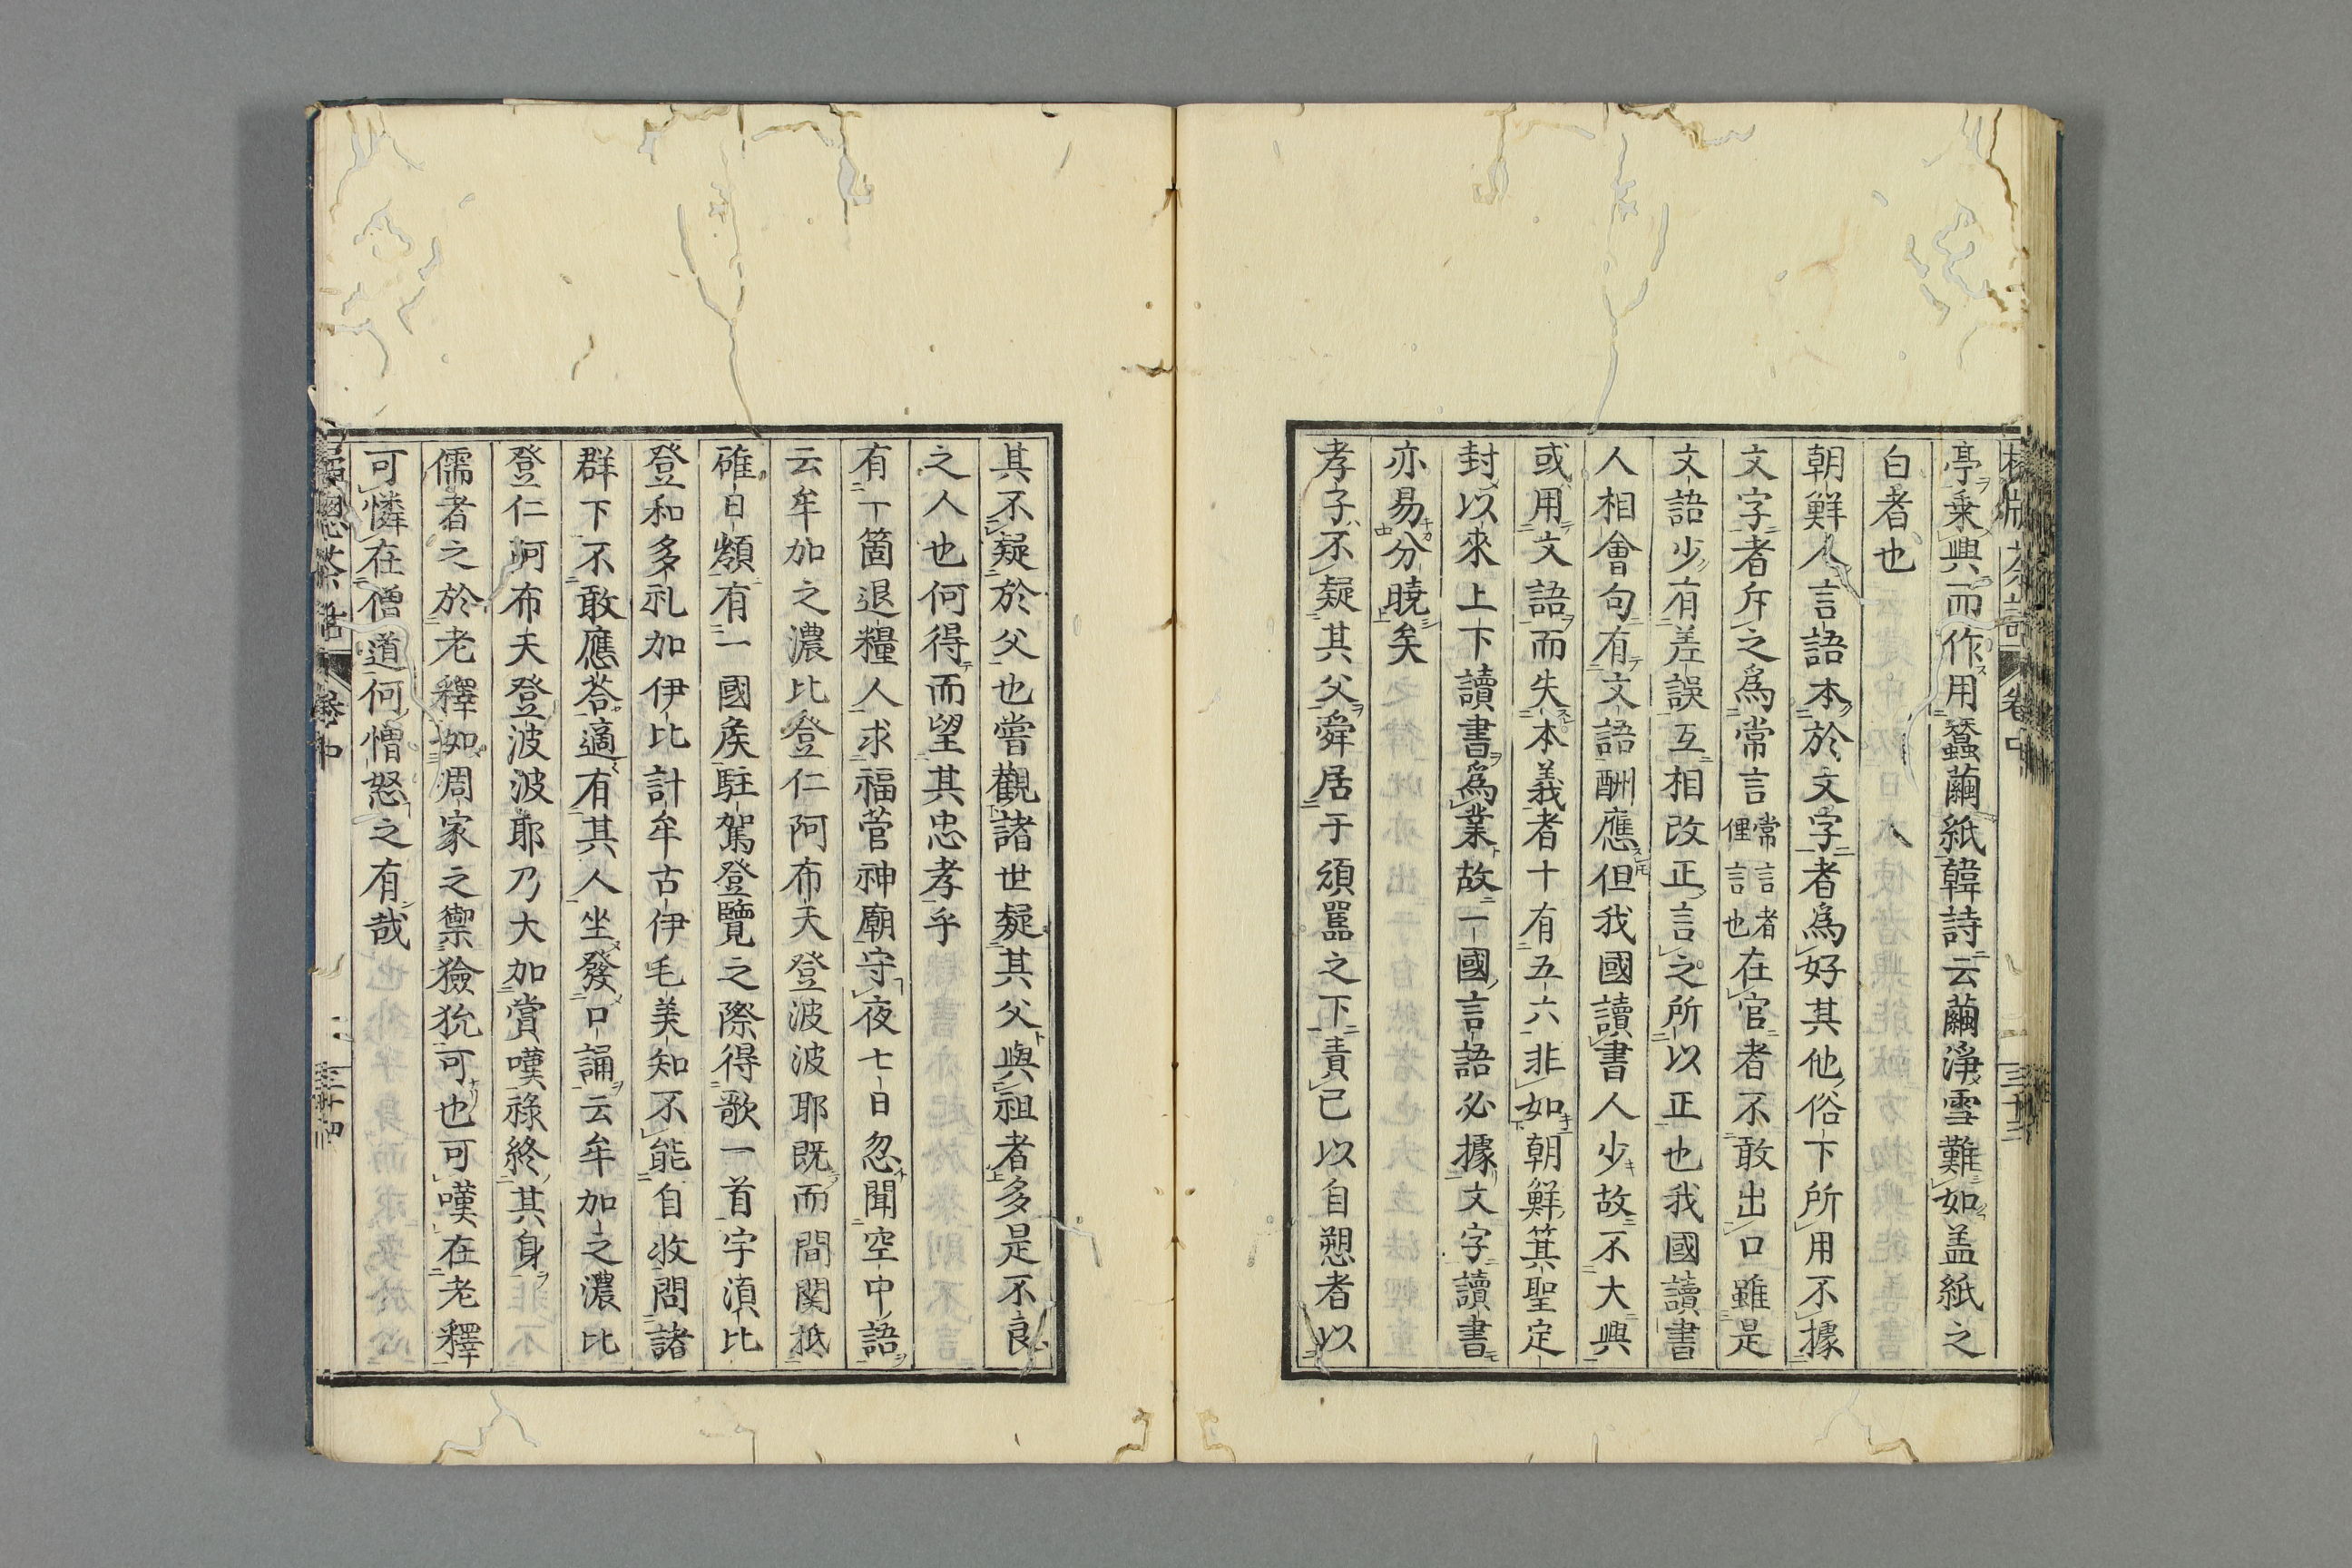 亭乗興而作用蠶繭紙韓詩云繭淨雪難如盖紙之
白者也
朝鮮人言語本於文字者爲好其他俗下所用不據
文字者斥之爲常言常言者俚言也在官者不敢出口雖是
文語少有差誤互相改正言之所以正也我國讀書
人相會句有文語酬應但我國讀書人少故不大興
或用文語而失本義者十有五六非如朝鮮箕聖定
封以來上下讀書爲業故一國言語必據文字讀書
亦易分曉矣
孝子不疑其父舜居于頑嚚之下責已以自愬者以
其不疑於父也嘗觀諸世疑其父與祖者多是不良
之人也何得而望其忠孝乎
有一箇退糧人求福菅神廟守夜七日忽聞空中語
云牟加之濃比登仁阿布天登波波耶既而間関抵
碓日嶺有一國侯駐駕登覽之際得歌一首字湏比
登和多礼加伊比計牟古伊毛美知不能自收問諸
群下不敢應荅適有其人坐發口誦云牟加之濃比
登仁阿布天登波波耶乃大加賞嘆祿終其身
儒者之於老釋如周家之禦獫狁可也可嘆在老釋
可憐在僧道何憎怒之有哉
卷中
三十三
卷中
三十四